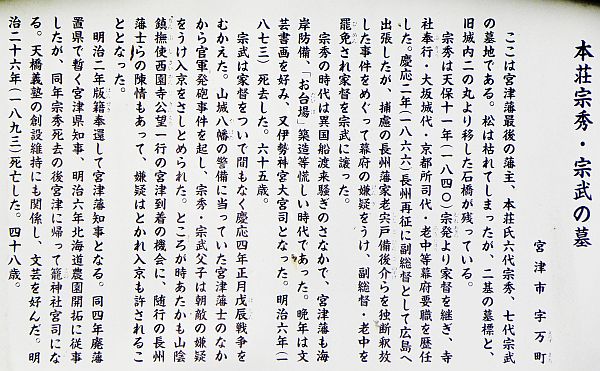 本荘宗秀・宗武の墓
宮津市 字万町
ここは宮津藩最後の藩主、本荘氏六代宗秀、七代宗武
の墓地である。松は枯れてしまったが、二基の墓標と、
旧城内二の丸より移した石橋が残っている。
宗秀は天保十一年(一八四〇)宗発より家督を継ぎ、寺
社奉行・大坂城代・京都所司代・老中等幕府要職を歴任
した。慶応二年(一八六六)長州再征に副総督として広島へ
出張したが、捕虜の長州藩家老宍戸備後介らを独断釈放
した事件をめぐって幕府の嫌疑をうけ、副総督・老中を
罷免され家督を宗武に譲った。
宗秀の時代は異国船渡来騒ぎのさなかで、宮津藩も海
岸防備、「お台場」築造等慌しい時代であった。晩年は文
芸書画を好み、又伊勢神宮大宮司となった。明治六年(一
八七三)死去した。六十五歳。
宗武は家督をついで間もなく慶応四年正月戊辰戦争を
むかえた。山城八幡の警備に当っていた宮津藩士のなか
から官軍発砲事件を起し、宗秀・宗武父子は朝敵の嫌疑
をうけ入京をさしとめられた。ところが時あたかも山陰
鎮撫使西園寺公望一行の宮津到着の機会に、随行の長州
藩士らの陳情もあって、嫌疑はとかれ入京も許されるこ
ととなった。
明治二年版籍奉還して宮津藩知事となる。同四年廃藩
置県で暫く宮津県知事、明治六年北海道農園開拓に従事
したが、同年宗秀死去の後宮津に帰って籠神社宮司にな
る。天橋義塾の創設維持にも関係し、文芸を好んだ。明
治二十六年(一八九三)死亡した。四十八歳。